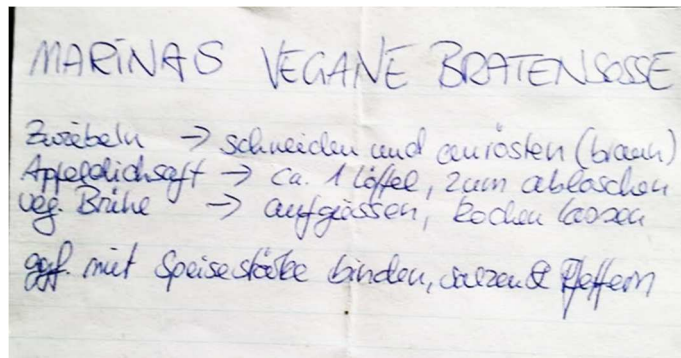 MARINAS VEGANE BRATENSOSSE
Zwiebeln → schneiden und anrösten (braun)
Apfeldicksaft → ca. 1 Löffel, zum ablöschen
veg. Brühe → aufgiessen, kochen lassen
ggf. mit Speisestärke binden, salzen & Pfeffern